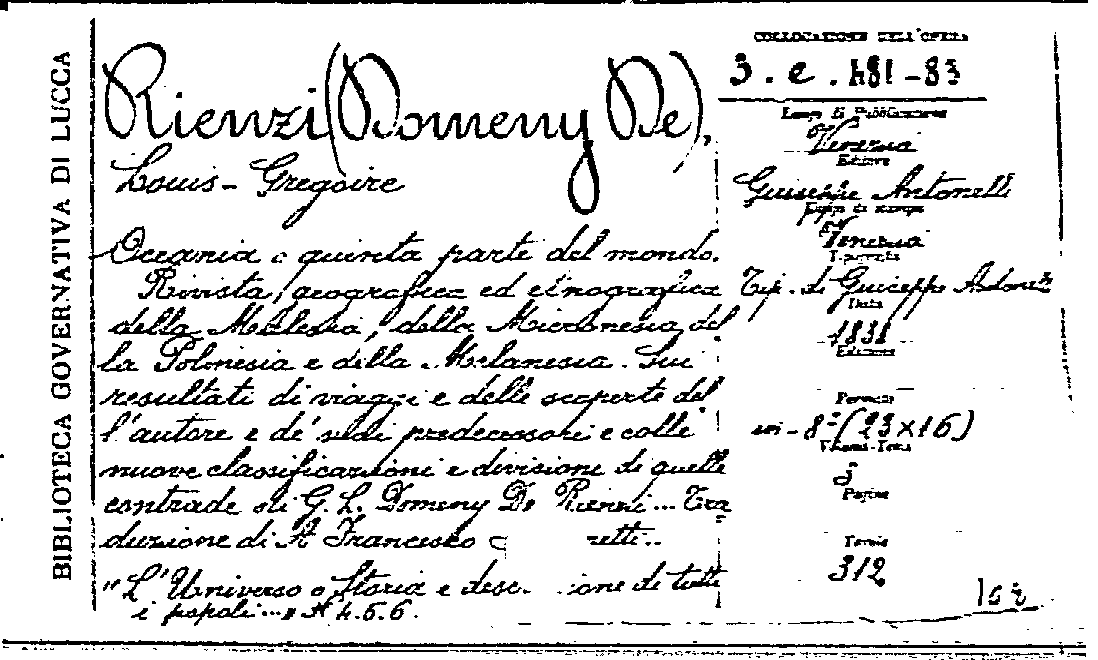 BIBLIOTECA GOVERNATIVA DI LUCCA
Rienzi (Domeny De),
Louis-Gregoire
Oceania o quinta parte del mondo.
Rivista geografica ed etnografica
della Malesia, della Micronesia, del
la Polinesia e della Melanesia. Sui
resultati di viaggi e delle scoperte del
l'autore e de' suoi predecessori e colle
nuove classificazioni e divisione di quelle
contrade di G. L. Domeny De Rienzi... Tra
duzione di A Francesco
"L'Universo o Storia e desc. ione di tutti
i popoli..." 4.5.6.
COLLOCAZIONE DELL'OPERA
3. e. 481-83
Luogo di Pubblicazione
Venezia
Editore
Giuseppe Antonelli
Luogo di stampa
Venezia
Tipografia
Tip. di Giuseppe Antonelli
Data
Edizione
Formato
in-8º (23x16)
Volumi-Tomi
3
Pagine
Tavole
312